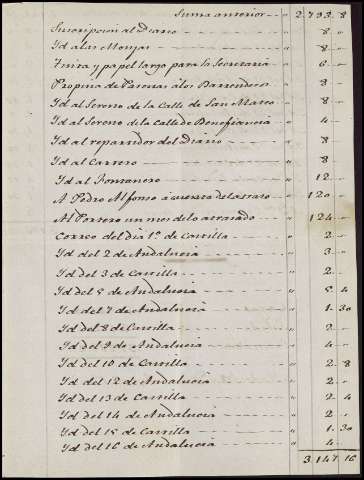 Suma anterior - - " 2.793. 8
Suscripcion al Diario - - " 8 -
Id a las Monjas - - " 8 -
Tinta y papel largo para la Secretaria " 6 -
Propina de Pascuas á los Barrenderos " 8 -
Id al Sereno de la Calle de San Marco " 8 -
Id al Sereno de la Calle de Beneficiencia " 4 -
Id al repartidor del Diario - - " 8 -
Id al Cartero - - " 8 -
Id al Fontanero - - " 12 -
A Pedro Alfonso á cuenta de lo atraso " 120 -
Al Portero un mes de lo atrasado " 124 -
Correo del dia 1º de Castilla - - " 2 -
Id del 2 de Andalucia - - " 3 -
Id del 3 de Castilla - - " 2 -
Id del 5 de Andalucia - - " 5. 4
Id del 7 de Andalucia - - " 1. 30
Id del 8 de Castilla - - " 2 -
Id del 9 de Andalucia - - " 4 -
Id del 10 de Castilla - - " 2. 8
Id del 12 de Andalucia - - " 2 -
Id del 13 de Castilla - - " 2. 4
Id del 14 de Andalucia - - " 2 -
Id del 15 de Castilla - - " 1. 30
Id del 16 de Andalucia - - " 4 -
3.147. 16